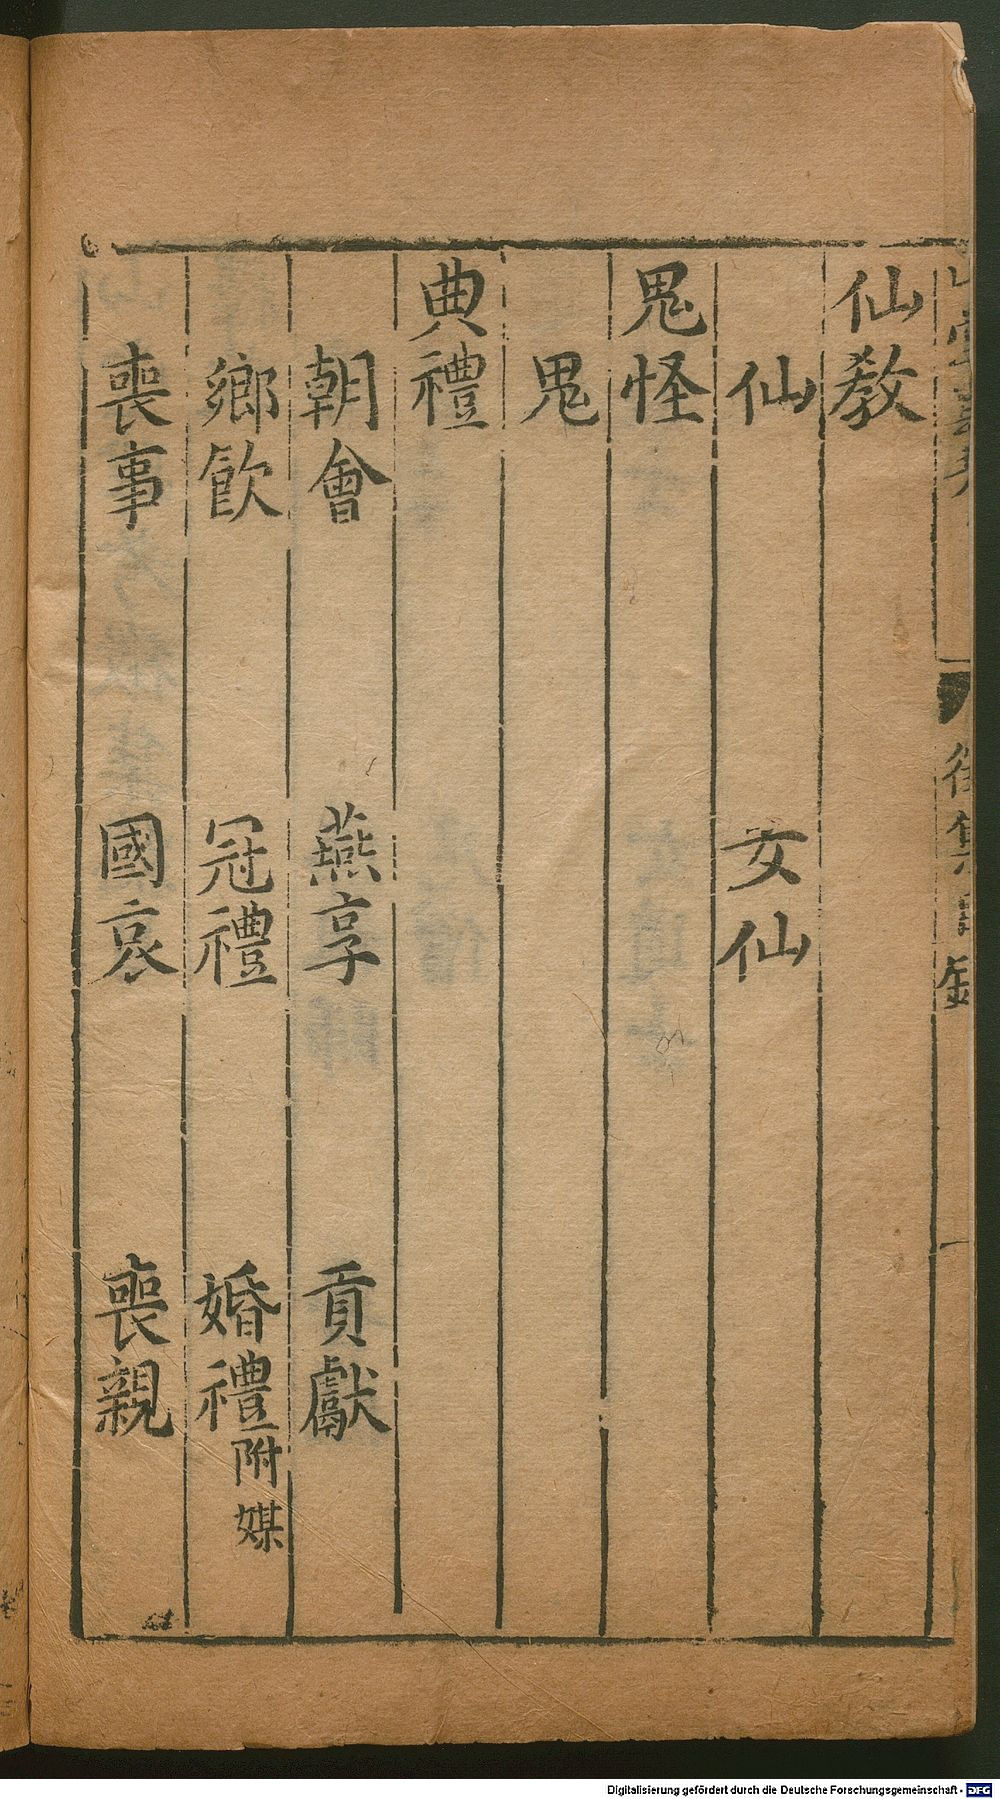 仙教
仙 女仙
鬼怪
鬼
典禮
朝會 燕享 貢獻
鄉飲 冠禮 婚禮附媒
喪事 國哀 喪親
Digitalisierung gefördert durch die Deutsche Forschungsgemeinschaft - DFG